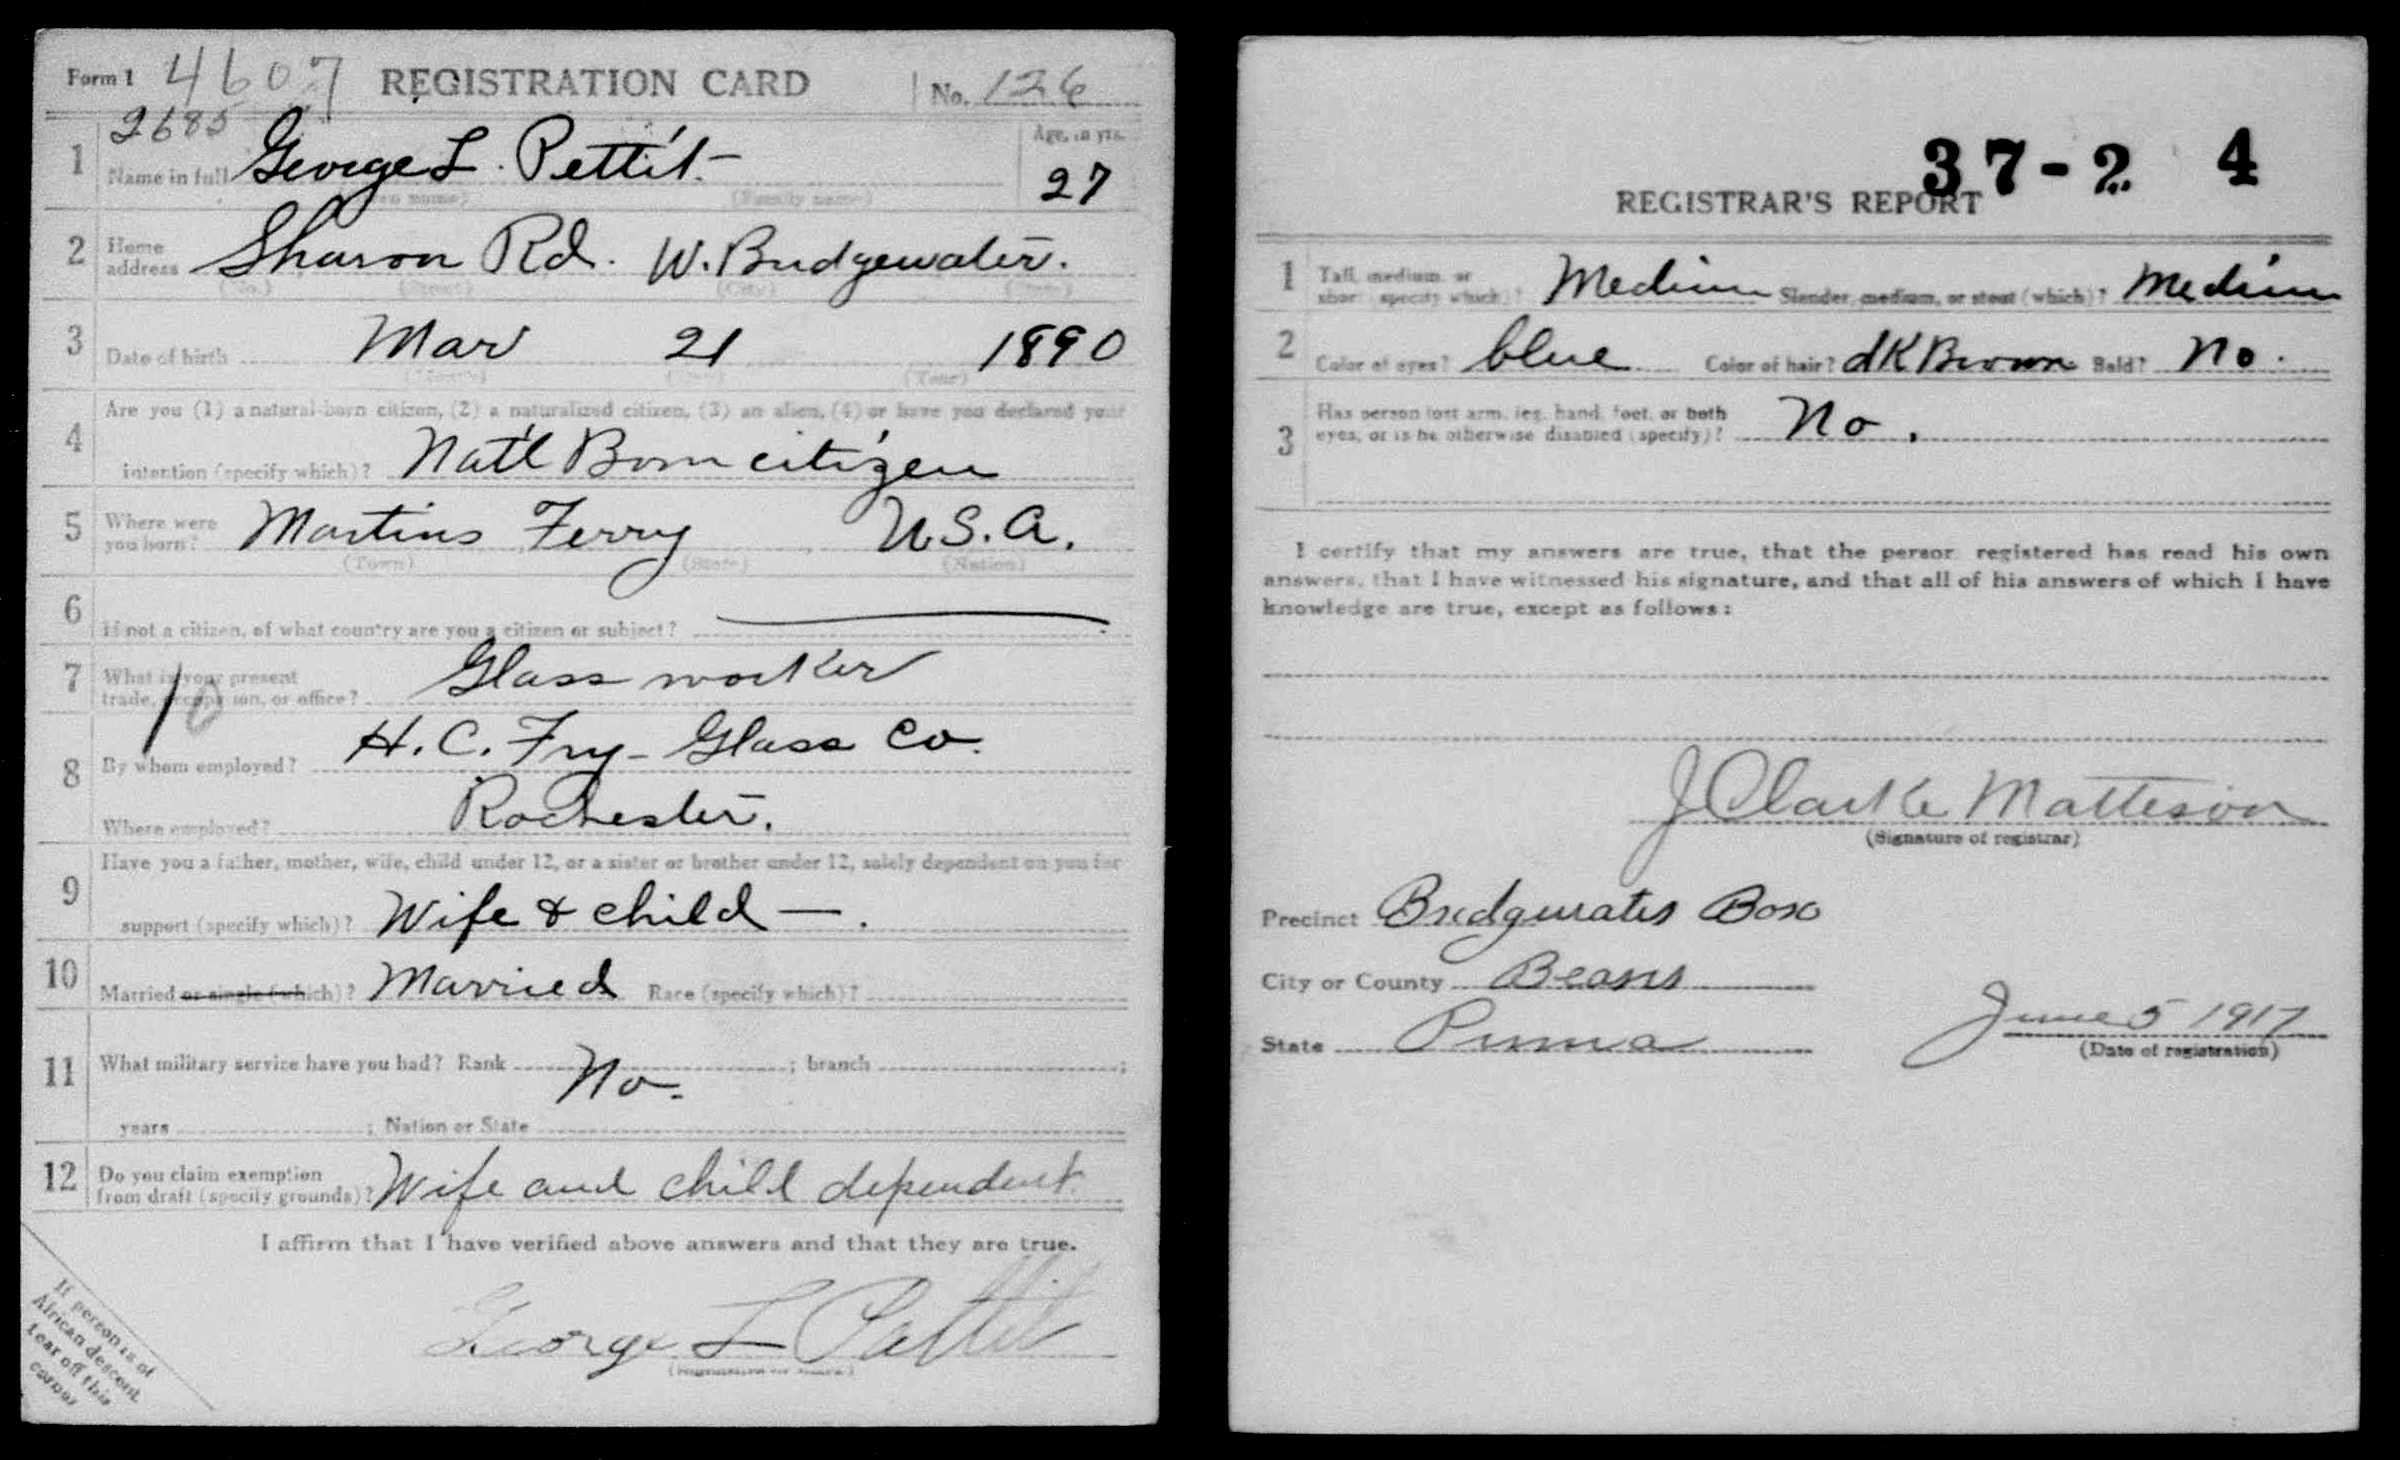 Form 1 4607 REGISTRATION CARD No. 126
2685
1 Name in full George L. Pettit Age, in yrs. 27
(Given name) (Family name)
2 Home address Sharon Rd. W. Bridgewater.
(No.) (Street) (City) (State)
3 Date of birth Mar 21 1890
(Month) (Day) (Year)
4 Are you (1) a natural-born citizen, (2) a naturalized citizen, (3) an alien, (4) or have you declared your
intention (specify which)? Nat'l Born citizen
5 Where were you born? Martins Ferry U.S.A.
(Town) (State) (Nation)
6 If not a citizen, of what country are you a citizen or subject?
7 What is your present trade, occupation, or office? Glass worker
10
8 By whom employed? H. C. Fry Glass Co.
Where employed? Rochester.
9 Have you a father, mother, wife, child under 12, or a sister or brother under 12, solely dependent on you for
support (specify which)? Wife & child
10 Married or single (which)? Married Race (specify which)?
11 What military service have you had? Rank No. ; branch ;
years ; Nation or State
12 Do you claim exemption from draft (specify grounds)? Wife and child dependent
I affirm that I have verified above answers and that they are true.
George L Pettit
(Signature or mark)
If person is of
African descent
tear off this
corner
37-2 4
REGISTRAR'S REPORT
1 Tall, medium, or short (specify which)? Medium Slender, medium, or stout (which)? Medium
2 Color of eyes? blue Color of hair? dk Brown Bald? No.
3 Has person lost arm, leg, hand, foot, or both
eyes, or is he otherwise disabled (specify)? No.
I certify that my answers are true, that the person registered has read his own
answers, that I have witnessed his signature, and that all of his answers of which I have
knowledge are true, except as follows:
J Clarke Matteson
(Signature of registrar)
Precinct Bridgewater Boro
City or County Beaver
State Penna June 5 1917
(Date of registration)